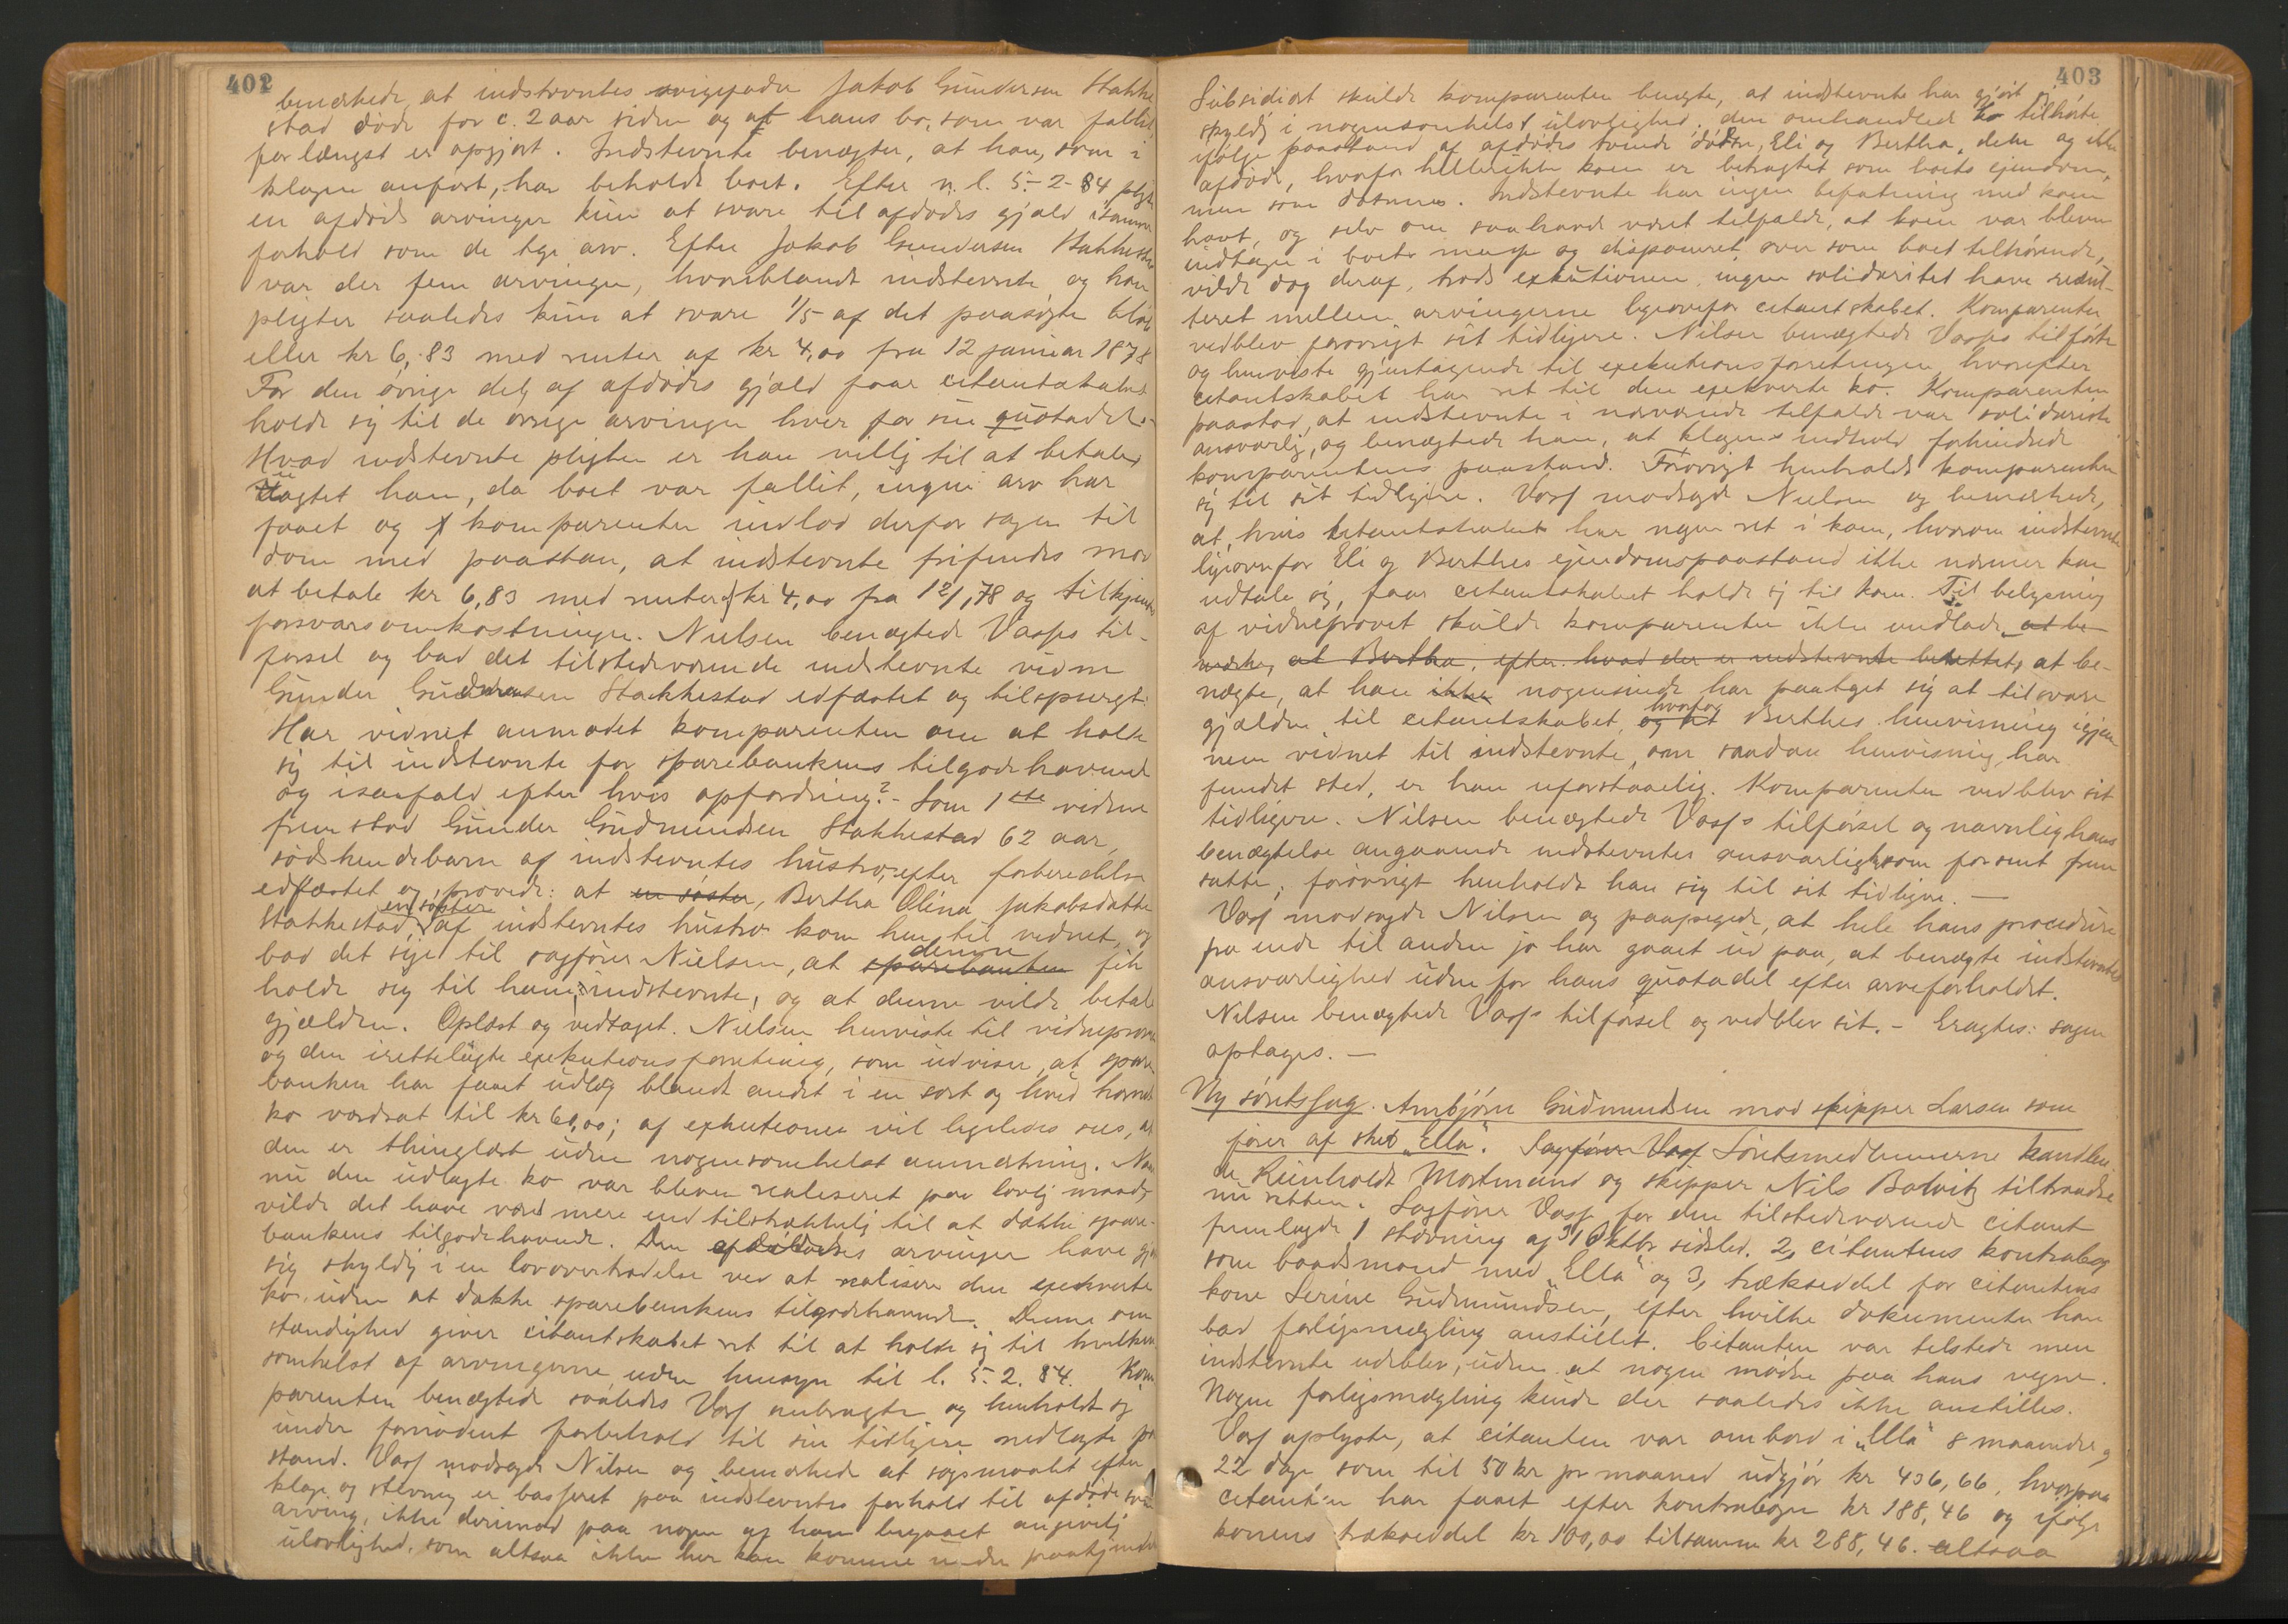 402
bemærkede, at indstevntes svigerfader Jakob Gundersen Stakke
stad døde for c. 2 aar siden og at hans bo, som var fallit,
for længst er opgjort. Indstevnte benægter, at han, som i
klagen anført, har beholdt boet. Efter n. l. 5-2-84 pligt
en afdøds arvinger kun at svare til afdødes gjæld i samme
forhold som de tage arv. Efter Jakob Gundersen Stakkestad
var der fem arvinger, hvoriblandt indstevnte og han
pligter saaledes kun at svare 1/5 af det paasøgte beløb
eller kr 6,83 med renter af kr 4,00 fra 12 januar 1878
For den øvrige del af afdødes gjæld faar citantskabet
holde sig til de øvrige arvinger hver for sin quotadel.-
Hvad indstevnte pligter er han villig til at betale,
uagtet han, da boet var fallit, ingen arv har
faaet og komparenten indlod derfor sagen til
dom med paastan, at indstevnte frifindes mod
at betale kr 6,83 med renter af kr 4,00 fra 12/1,78 og tilkjendes
forsvarsomkostninger. Nielsen benægtede Vasfs til-
førsel og bad det tilstedeværende indstevnte vidne
Gunder Gudmundsen Stakkestad edfæstet og tilspurgt:
Har vidnet anmodet komparenten om at holde
sig til indstevnte for sparebankens tilgodehavende
og isaafald efter hvis opfordring?- Som 1ste vidne
fremstod Gunder Gudmundsen Stakkestad 62 aar,
sødskendebarn af indstevntes hustro, efter forberedelse
edfæstet og provede: at en søster, Bertha Olina Jakobsdatter
Stakkestad, en søster af indstevntes hustro kom hen til vidnet, og
bad det sige til sagfører Nielsen, at sparebanken denne fik
holde sig til ham, indstevnte, og at denne vilde betale
gjælden. Oplæst og vedtaget. Nielsen henviste til vidneprovet
og den irettelagte exekutionsforretning, som udviser, at spare
banken har faaet udlæg blandt andet i en sort og hvid hornet
ko værdsat til kr 60,00; af exkutionen vil ligeledes sees, at
den er thinglæst uden nogensomhelst anmærkning. Naar
nu den udlagte ko var bleven realiseret paa lovlig maade
vilde det have været mere end tilstrækkelig til at dække spare-
bankens tilgodehavende. Den afdødes arvinger have gjort
sig skyldig i en lovovertrædelse ved at realisere den exekverte
ko uden at dække sparebankens tilgodehavende. Denne om
stændighed giver citantskabet ret til at holde sig til hvilken
somhelst af arvingerne uden hensyn til l. 5-2.84. Kom
parenten benægtede saaledes Vasf anbragte og henholdt sig
under fornødent forbehold til sin tidligere nedlagte paa
stand. Vasf modsagde Nilsen og bemærkede at sagsmaalet efter
klage og stevning er basseret paa indstevntes forhold til afdøde som
arving, ikke derimod paa nogen af ham begaaet angivelig
ulovlighed, som altsaa ikke her kan komme under paakjendelse
403
Subsidiært skulde komparenten benægte, at indstevnte har gjort sig
skyldig i nogensomhelst ulovlighed; den omhandlede ko tilhørte
ifølge paastand af afdødes tvende døtre, Eli og Bertha, dem og ikke
afdøde, hvorfor hellerikke koen er betragtet som boets ejendom,
men som døtrenes. Indstevnte har ingen befatning med koen
havt, og selv om saa havde været tilfælde, at koen var bleven
indtagen i boets masse og disponeret over som boet tilhørende,
vilde dog deraf, trods exkutionen ingen solidaritet have resul-
teret mellem arvingerne ligeoverfor citantskabet. Komparenten
vedblev forøvrigt sit tidligere. Nilsen benægtede Vasfs tilførte
og henviste gjentagende til exekutionsforretningen hvorefter
citantskabet har ret til den exekverte ko. Komparenten
paastod, at indstevnte i nærværende tilfælde var solidarisk
ansvarlig, og benægtede han, at klagens indhold forhindrede
komparentens paastand. Forøvrigt henholdt komparenten
sig til sit tidligere. Vasf modsagde Nielsen og bemærkede,
at, hvis citantskabet har nogen ret i koen, hvorom indstevnte
ligeoverfor Eli og Berthes ejendomspaastand ikke nærmer kan
udtale sig, faar citantskabet holde sig til koen. Til belysning
af vidneprovet skulde komparenten ikke undlade at be-
mærke, at Bertha, efter hvad der er indstevnte berettet, at be-
nægte, at han ikke nogensinde har paataget sig at tilsvare
gjælden til citantskabet, og at hvorfor Berthes henvisning igjen
nem vidnet til indstevnte, om saadan henvisning har
fundet sted, er ham uforstaaelig. Komparenten vedblev sit
tidligere. Nilsen benægtede Vasfs tilførsel og navnlig hans
benægtelse angaaende indstevntes ansvarlighed som forsvarer frem
satte; forøvrigt henholdt han sig til sit tidligere. —
Vasf modsagde Nilsen og paapegede, at hele hans procedure
fra ende til anden jo har gaaet ud paa, at benægte indstevntes
ansvarlighed uden for hans quotadel efter arveforholdet.
Nilsen benægtede Vasfs tilførsel og vedblev sit. - Eragtes: sagen
optages. —
Ny søretssag. Ambjørn Gudmundsen mod skipper Larsen som
fører af skib „Ella". Sagfører Vasf Søretsmedlemmerne handlen
de Reinholdt Mortmand og skipper Nils Bolvitz tiltraadte
nu retten. Sagfører Vasf for den tilstedeværende citant
fremlagde 1 stævning af 31 oktbr sidstl. 2, citantens kontrabog
som baadsmand med „Ella" og 3, trækseddel for citantens
kone Serine Gudmundsen, efter hvilke dokumenter han
bad forligsmægling anstillet. Citanten var tilstede men
indstevnte udeblev, uden at nogen mødte paa hans vegne.
Nogen forligsmægling kunde der saaledes ikke anstilles.
Vasf oplyste, at citanten var ombord i „Ella" 8 maaneder og
22 dage som til 50 kr pr maaned udgjør kr 436,66, hvorpaa
citanten har faaet efter kontrabogen kr 188,46 og ifølge
konens trækseddel kr 100,00 tilsammen kr 288,46. altsaa